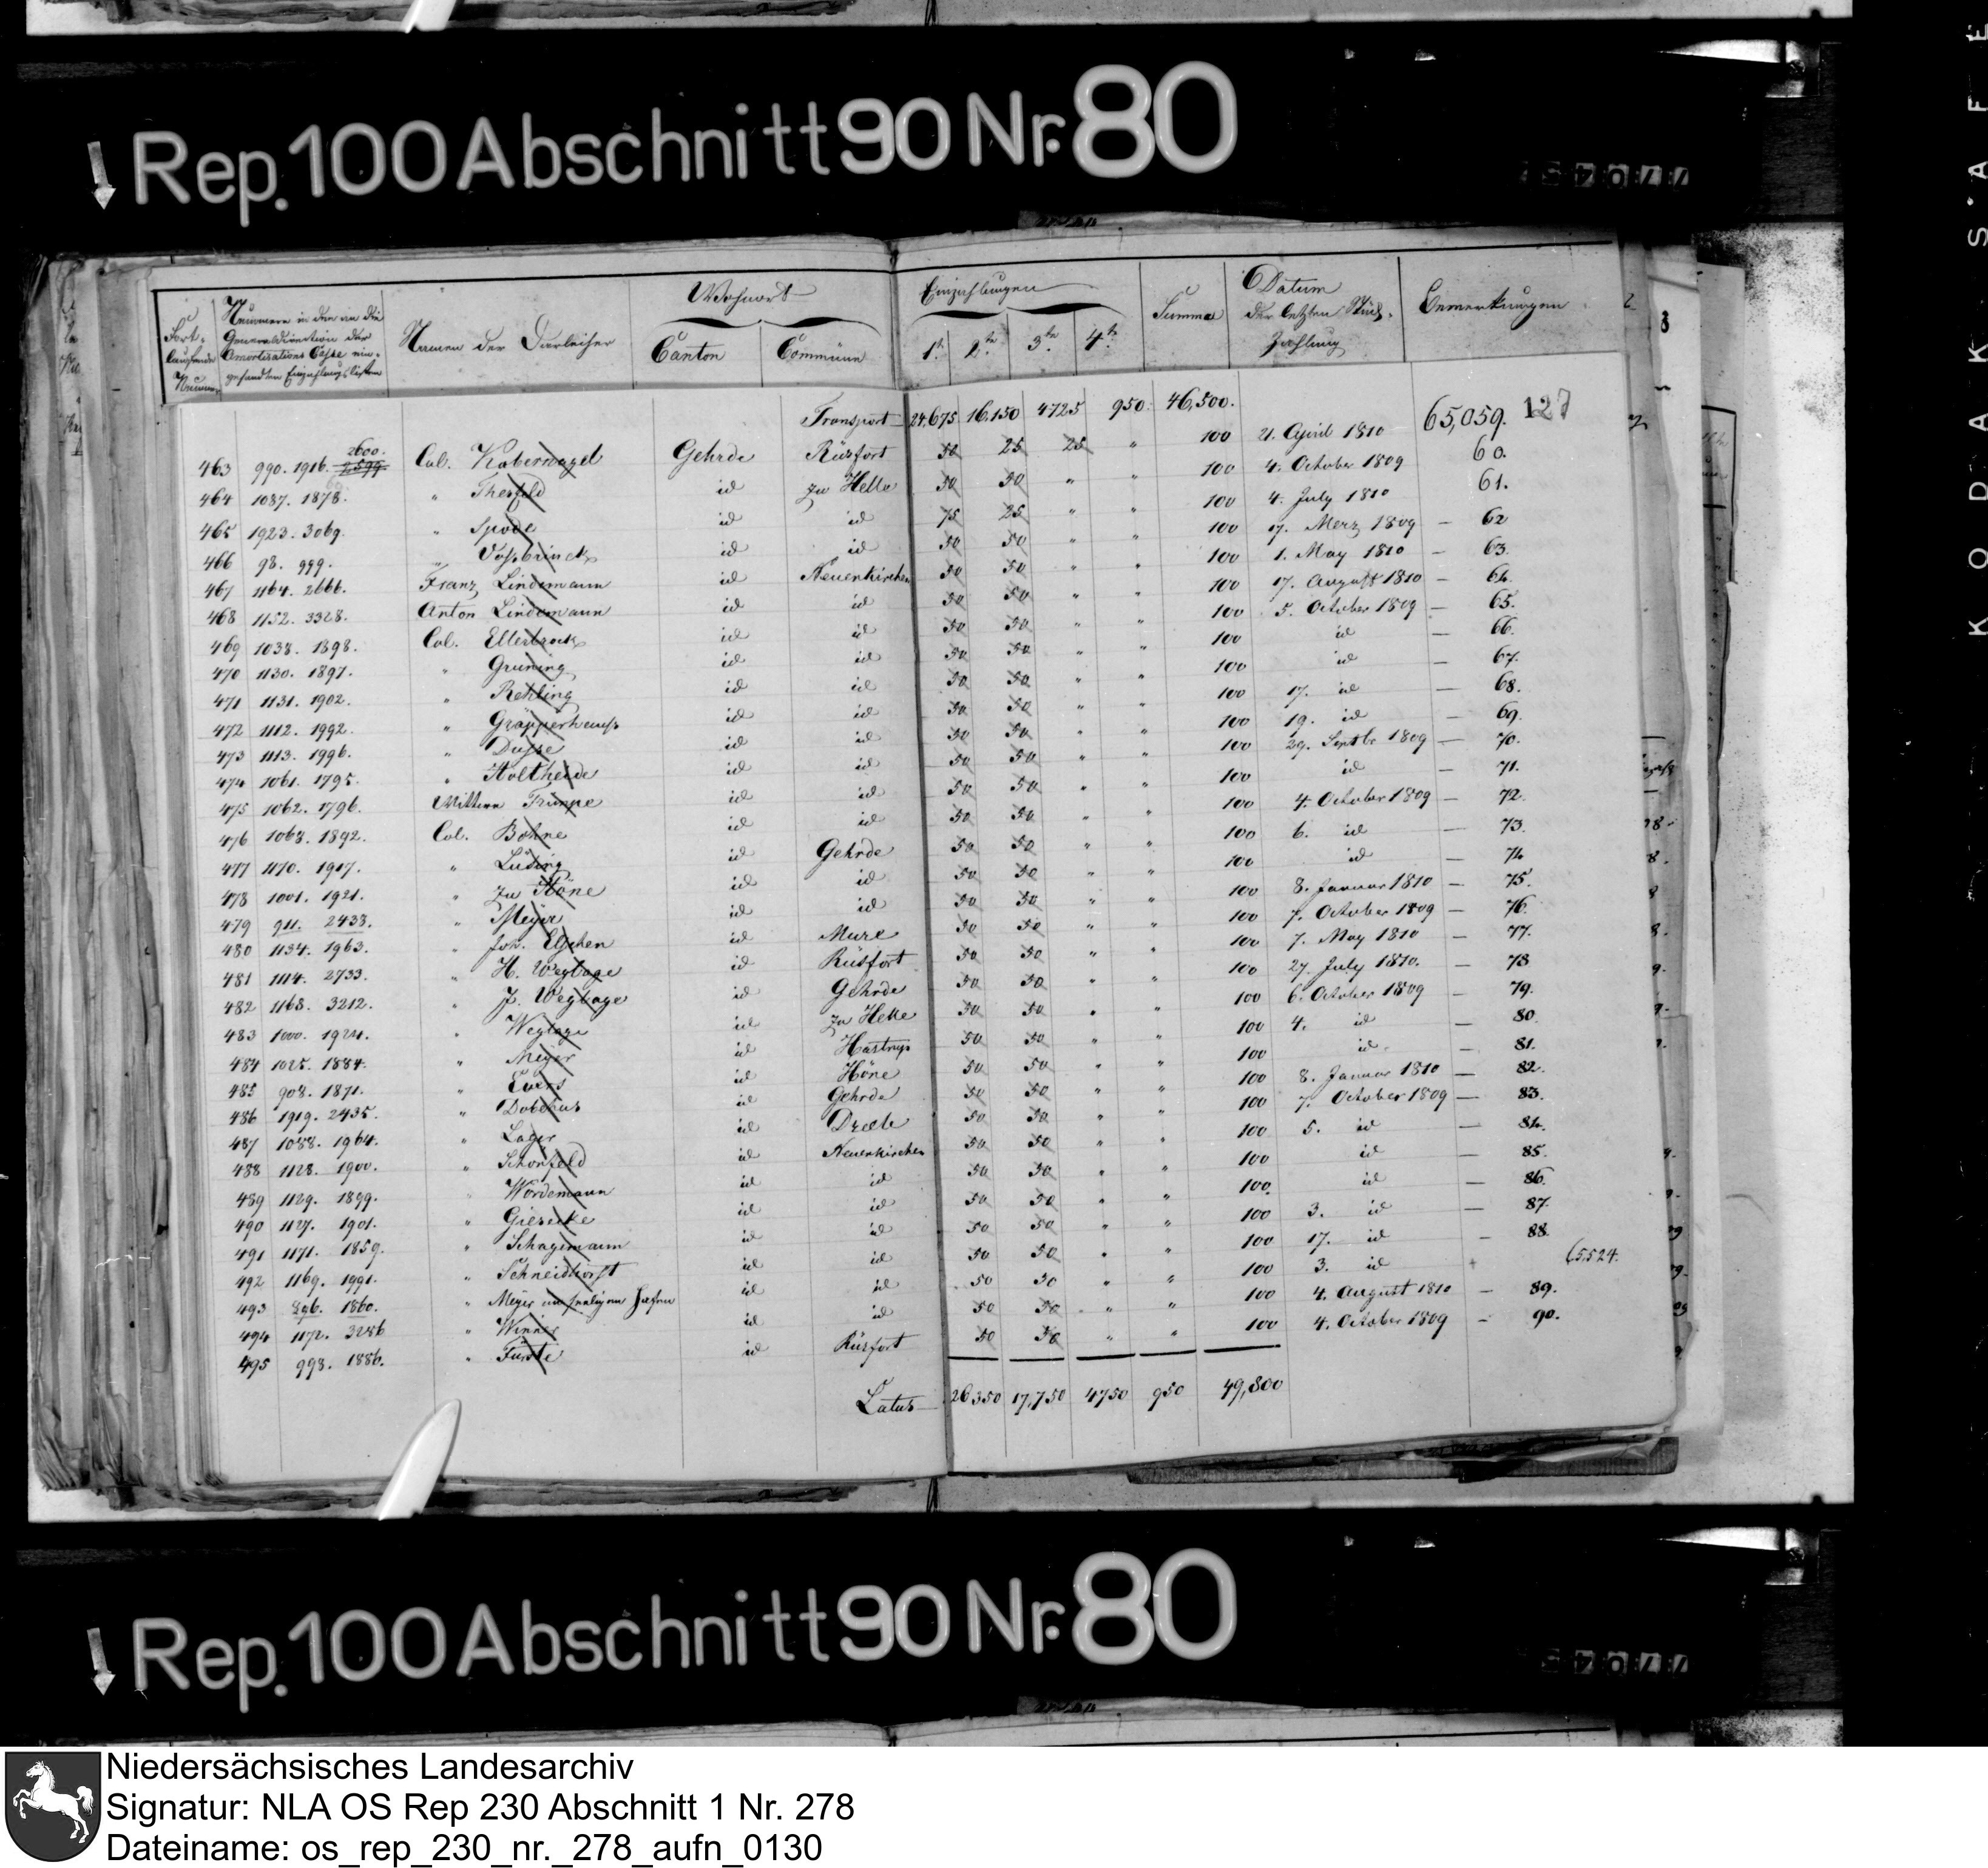 Rep. 100 Abschnitt 90 Nr. 80
Fort-laufende Nummer | Nummern in den an die Generaldirection der Amortisations Casse ein-gesandten Einzahlungslisten | Namen der Darleiher | Wohnort Canton Commüne | Einzahlungen 1te 2te 3te 4te | Summa | Datum der letzten Rück-Zahlung | Bemerkungen
Transport 24,675 16,150 4725 950. 46,500. 127
463 990. 1916. 2599. 2600. Col. Kabernagel Gehrde Rüsfort 50 25 25 " 100 21. April 1810 65,059.
464 1037. 1878. " Thesfeld id zu Helle 50 50 " " 100 4. October 1809 60.
465 1923. 3069. " Spode id id 75 25 " " 100 4. July 1810 61.
466 98. 999. " Voßbrinck id id 50 50 " " 100 17. Merz 1809 — 62
467 1164. 2666. Franz Lindemann id Neuenkirchen 50 50 " " 100 1. May 1810 — 63.
468 1152. 3328. Anton Lindemann id id 50 50 " " 100 17. August 1810 — 64.
469 1038. 1898. Col. Ellerbrock id id 50 50 " " 100 5. October 1809 — 65.
470 1130. 1897. " Gruning id id 50 50 " " 100 id — 66.
471 1131. 1902. " Rehling id id 50 50 " " 100 id — 67.
472 1112. 1992. " Gräpperhaus id id 50 50 " " 100 17. id — 68.
473 1113. 1996. " Dusse id id 50 50 " " 100 19. id — 69.
474 1061. 1795. " Holtheide id id 50 50 " " 100 29. Septbr 1809 — 70.
475 1062. 1796. Wittwe Trumpe id id 50 50 " " 100 id — 71.
476 1063. 1892. Col. Bohne id id 50 50 " " 100 4. October 1809 — 72.
477 1170. 1917. " Luding id Gehrde 50 50 " " 100 6. id — 73.
478 1001. 1921. " zu Höne id id 50 50 " " 100 id — 74.
479 911. 2438. " Meyer id id 50 50 " " 100 8. Januar 1810 — 75.
480 1134. 1963. " Joh. Elschen id Mure 50 50 " " 100 7. October 1809 — 76.
481 1114. 2733. " H. Weglage id Rüsfort 50 50 " " 100 7. May 1810 — 77.
482 1168. 3212. " J. Weglage id Gehrde 50 50 " " 100 27. July 1810. — 78
483 1000. 1924. " Weglage id zu Helle 50 50 " " 100 6. October 1809 — 79.
484 1025. 1884. " Meyer id Hastrup 50 50 " " 100 4. id — 80.
485 908. 1871. " Evers id Höne 50 50 " " 100 id. — 81.
486 1919. 2435. " Dobehus id Gehrde 50 50 " " 100 8. Januar 1810 — 82.
487 1088. 1964. " Lager id Drehle 50 50 " " 100 7. October 1809 — 83.
488 1128. 1900. " Schonfeld id Neuenkirchen 50 50 " " 100 5. id — 84.
489 1129. 1899. " Wordemann id id 50 50 " " 100 id — 85.
490 1127. 1901. " Giesecke id id 50 50 " " 100. id — 86.
491 1171. 1859. " Schagemann id id 50 50 " " 100 3. id — 87.
492 1169. 1991. " Schneidhorst id id 50 50 " " 100 17. id — 88.
493 896. 1860. " Meyer id id 50 50 " " 100 3. id + 65524.
494 1172. 3286 " Winner id id 50 50 " " 100 4. August 1810 — 89.
495 998. 1886. " Furste id Rüsfort 50 50 " " 100 4. October 1809 — 90.
Latus 26350 17,750 4750 950 49,800
Rep. 100 Abschnitt 90 Nr. 80
KODAK SAFE
Niedersächsisches Landesarchiv
Signatur: NLA OS Rep 230 Abschnitt 1 Nr. 278
Dateiname: os_rep_230_nr._278_aufn_0130